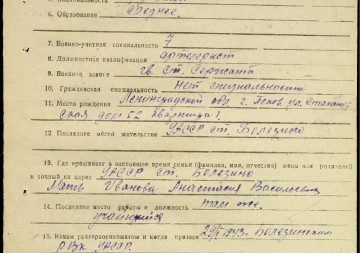 6. Образование Среднее.
7. Военно-учетная специальность 7
8. Должностная квалификация артелерист
9. Военное звание гв. Ст. Сержант
10. Гражданская специальность Нет специальности
11. Место рождения Ленинградской обл г. Псков ул. Стахановская
дом 52 квартира 1.
12. Последнее место жительства УАССР ст. Балезино
13. Где проживает в настоящее время семья (фамилия, имя, отчество) жены или родителей
и точный их адрес УАССР ст. Балезино
Мать Иванова Анастасия Васильевна
14. Последнее место работы и должность там же.
учащийся
15. Каким райгорвоенкоматом и когда призван 1943. Балезинским
РВК УАССР.